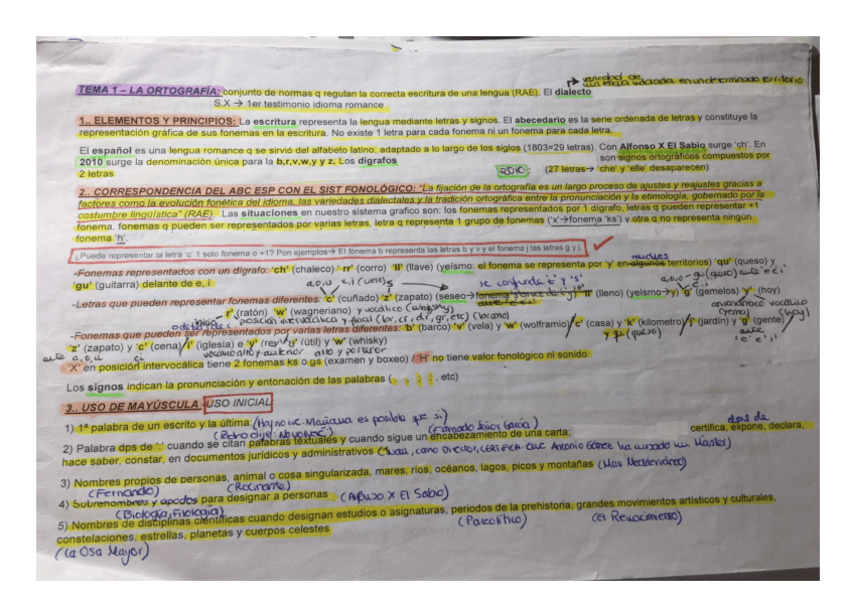 variedad de
una lengua hablada en un determinado territorio
TEMA 1 – LA ORTOGRAFÍA: conjunto de normas q regulan la correcta escritura de una lengua (RAE). El dialecto
S.X → 1er testimonio idioma romance
1.. ELEMENTOS Y PRINCIPIOS: La escritura representa la lengua mediante letras y signos. El abecedario es la serie ordenada de letras y constituye la
representación gráfica de sus fonemas en la escritura. No existe 1 letra para cada fonema ni un fonema para cada letra.
El español es una lengua romance q se sirvió del alfabeto latino, adaptado a lo largo de los siglos (1803=29 letras). Con Alfonso X El Sabio surge 'ch'. En
2010 surge la denominación única para la b,r,v,w,y y z. Los dígrafos son signos ortográficos compuestos por
2 letras 2010: (27 letras→ 'che' y 'elle' desaparecen)
2.. CORRESPONDENCIA DEL ABC ESP CON EL SIST FONOLÓGICO: "La fijación de la ortografía es un largo proceso de ajustes y reajustes gracias a
factores como la evolución fonética del idioma, las variedades dialectales y la tradición ortográfica entre la pronunciación y la etimología, gobernado por la
costumbre lingüística" (RAE). Las situaciones en nuestro sistema grafico son: los fonemas representados por 1 dígrafo, letras q pueden representar +1
fonema, fonemas q pueden ser representados por varias letras, letra q representa 1 grupo de fonemas ('x'→fonema 'ks') y otra q no representa ningún
fonema 'h'.
¿Puede representar la letra 'c' 1 solo fonema o +1? Pon ejemplos→ El fonema b representa las letras b y v y el fonema j las letras g y j.
muchos
-Fonemas representados con un dígrafo: 'ch' (chaleco) 'rr' (corro) 'll' (llave) (yeísmo: el fonema se representa por 'y' en algunos territorios) 'qu' (queso) y
'gu' (guitarra) delante de e, i
se confunde
-Letras que pueden representar fonemas diferentes: 'c' (cuñado) 'z' (zapato) (seseo→fonema 'll' (lleno) (yeísmo→y) 'g' (gemelos) 'y' (hoy)
'r' (ratón) 'w' (wagneriano) y vocálico (whisky)
posición intervocálica y final (br, cr, dr, gr, etc) (brama)
-Fonemas que pueden ser representados por varias letras diferentes: 'b' (barco) 'v' (vela) y 'w' (wolframio)/ 'c' (casa) y 'k' (kilometro)/'j' (jardín) y 'g' (gente)
y qu (queso)
'z' (zapato) y 'c' (cena)/ 'i' (iglesia) e 'y' (rey)/ 'u' (útil) y 'w' (whisky)
ante a, o, u
'X' en posición intervocálica tiene 2 fonemas ks o gs (examen y boxeo) / 'H' no tiene valor fonológico ni sonido
Los signos indican la pronunciación y entonación de las palabras (, , etc)
3.. USO DE MAYÚSCULA -USO INICIAL
1) 1ª palabra de un escrito y la última: (Hoy no iré. Mañana es posible que sí)
(Pedro dijo: No volveré) (Estimado Señor García:) dps de
2) Palabra dps de ':' cuando se citan palabras textuales y cuando sigue un encabezamiento de una carta; certifica, expone, declara,
hace saber, constar, en documentos jurídicos y administrativos (Juan, como Director, CERTIFICA: Que Antonio Gómez ha cursado un Máster)
3) Nombres propios de personas, animal o cosa singularizada, mares, ríos, océanos, lagos, picos y montañas (Mar Mediterráneo)
(Fernando) (Rocinante)
4) Subrenombres y apodos para designar a personas (Alfonso X El Sabio)
(Biología, Filología)
5) Nombres de disciplinas científicas cuando designan estudios o asignaturas, periodos de la prehistoria, grandes movimientos artísticos y culturales,
(Paleolítico) (El Renacimiento)
constelaciones, estrellas, planetas y cuerpos celestes
(La Osa Mayor)